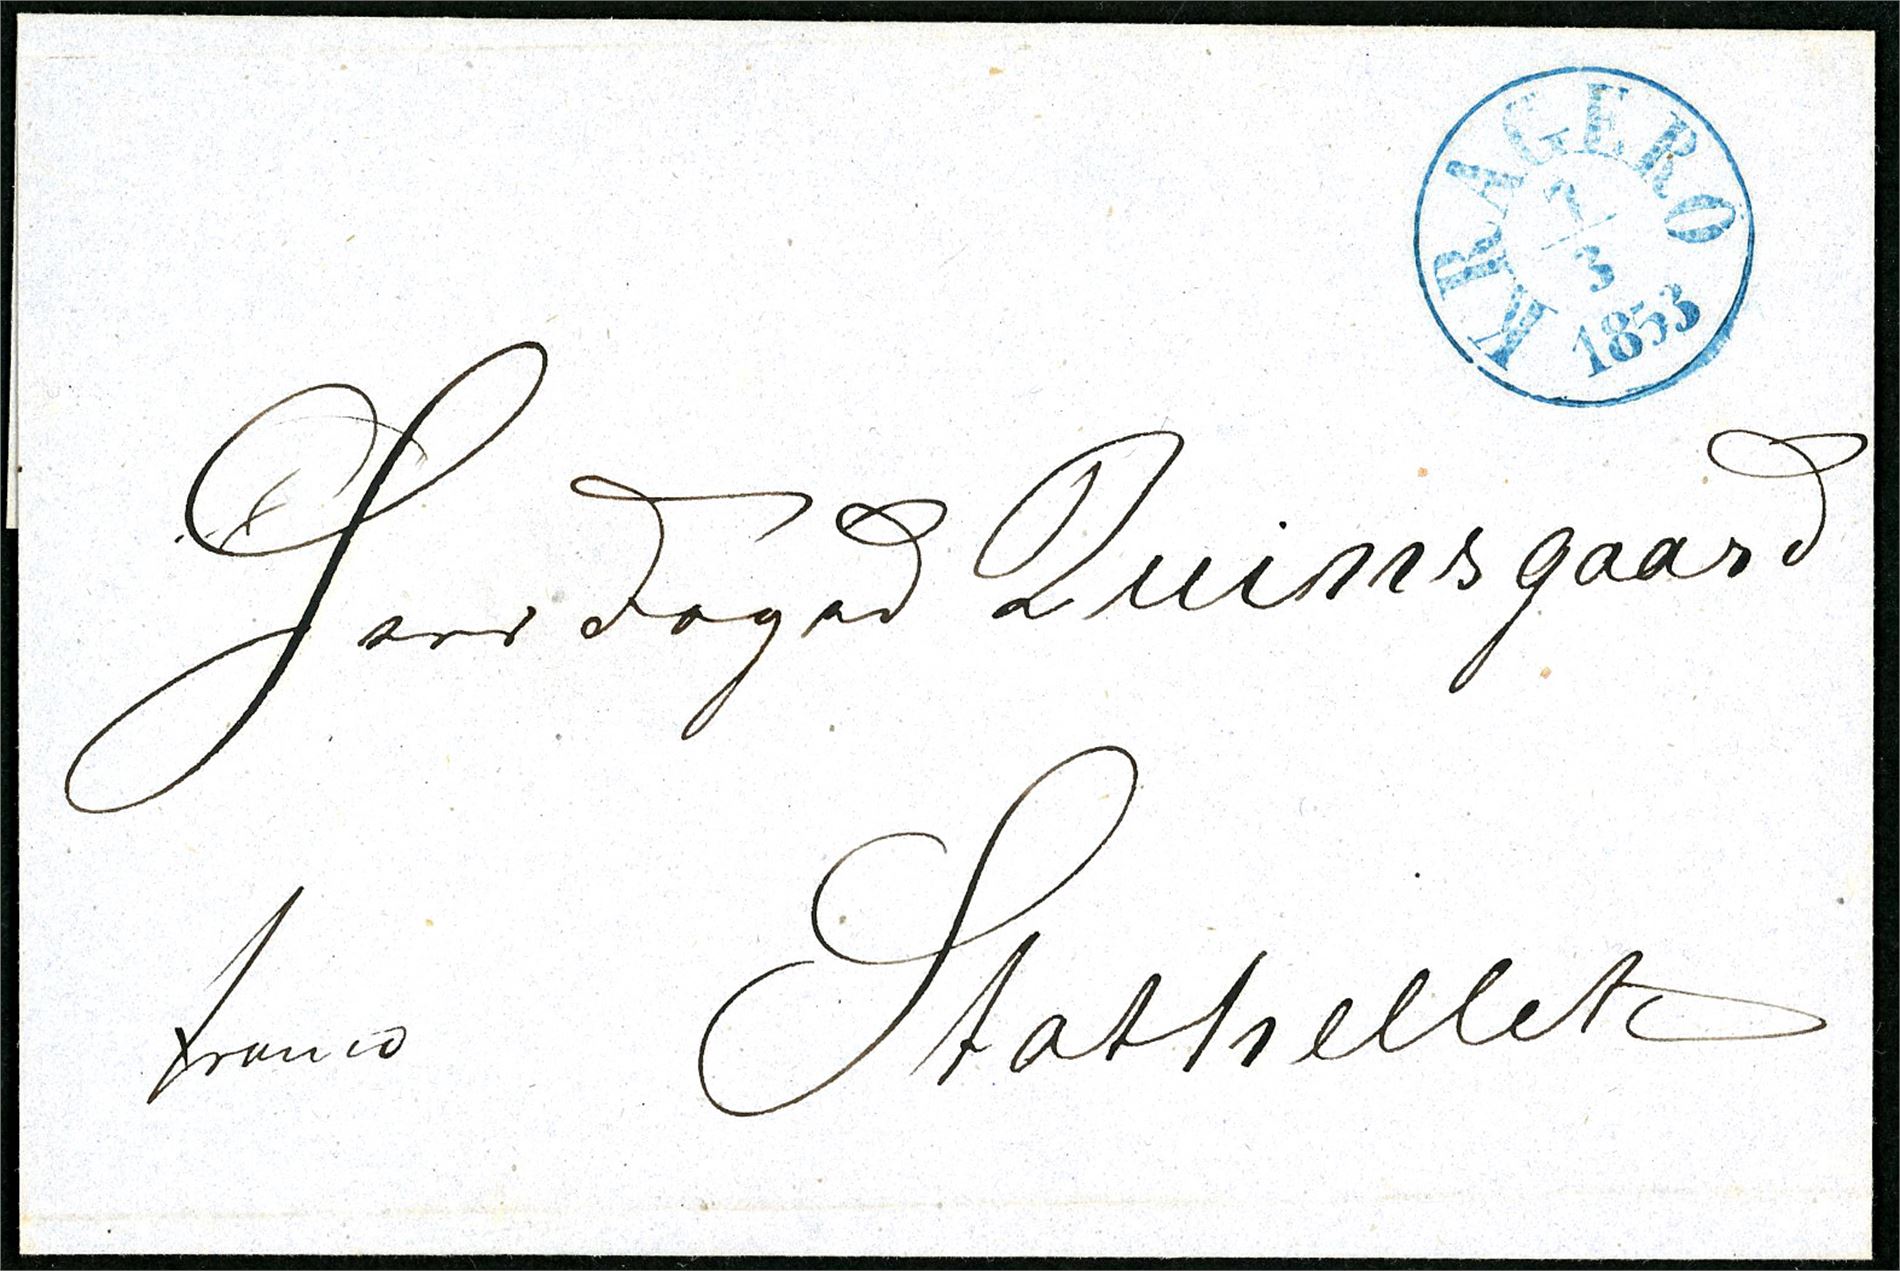 KRAGERØ
2/3
1853
Herr Foged Quimsgaard
Stathellet
franco